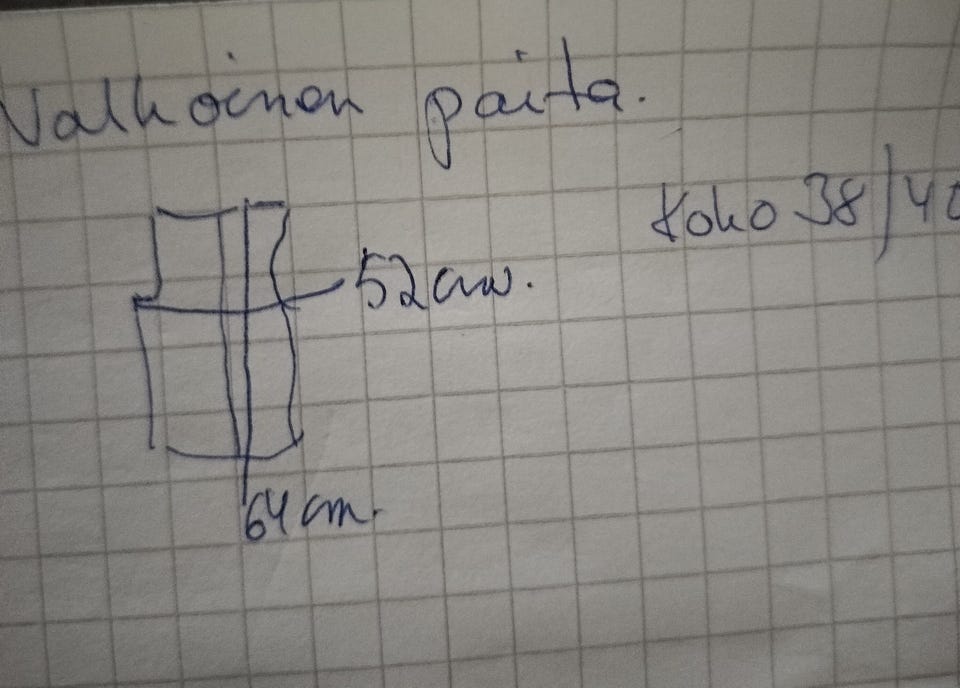 Valkoinen paita.
Koko 38/40
52 cm.
64 cm.